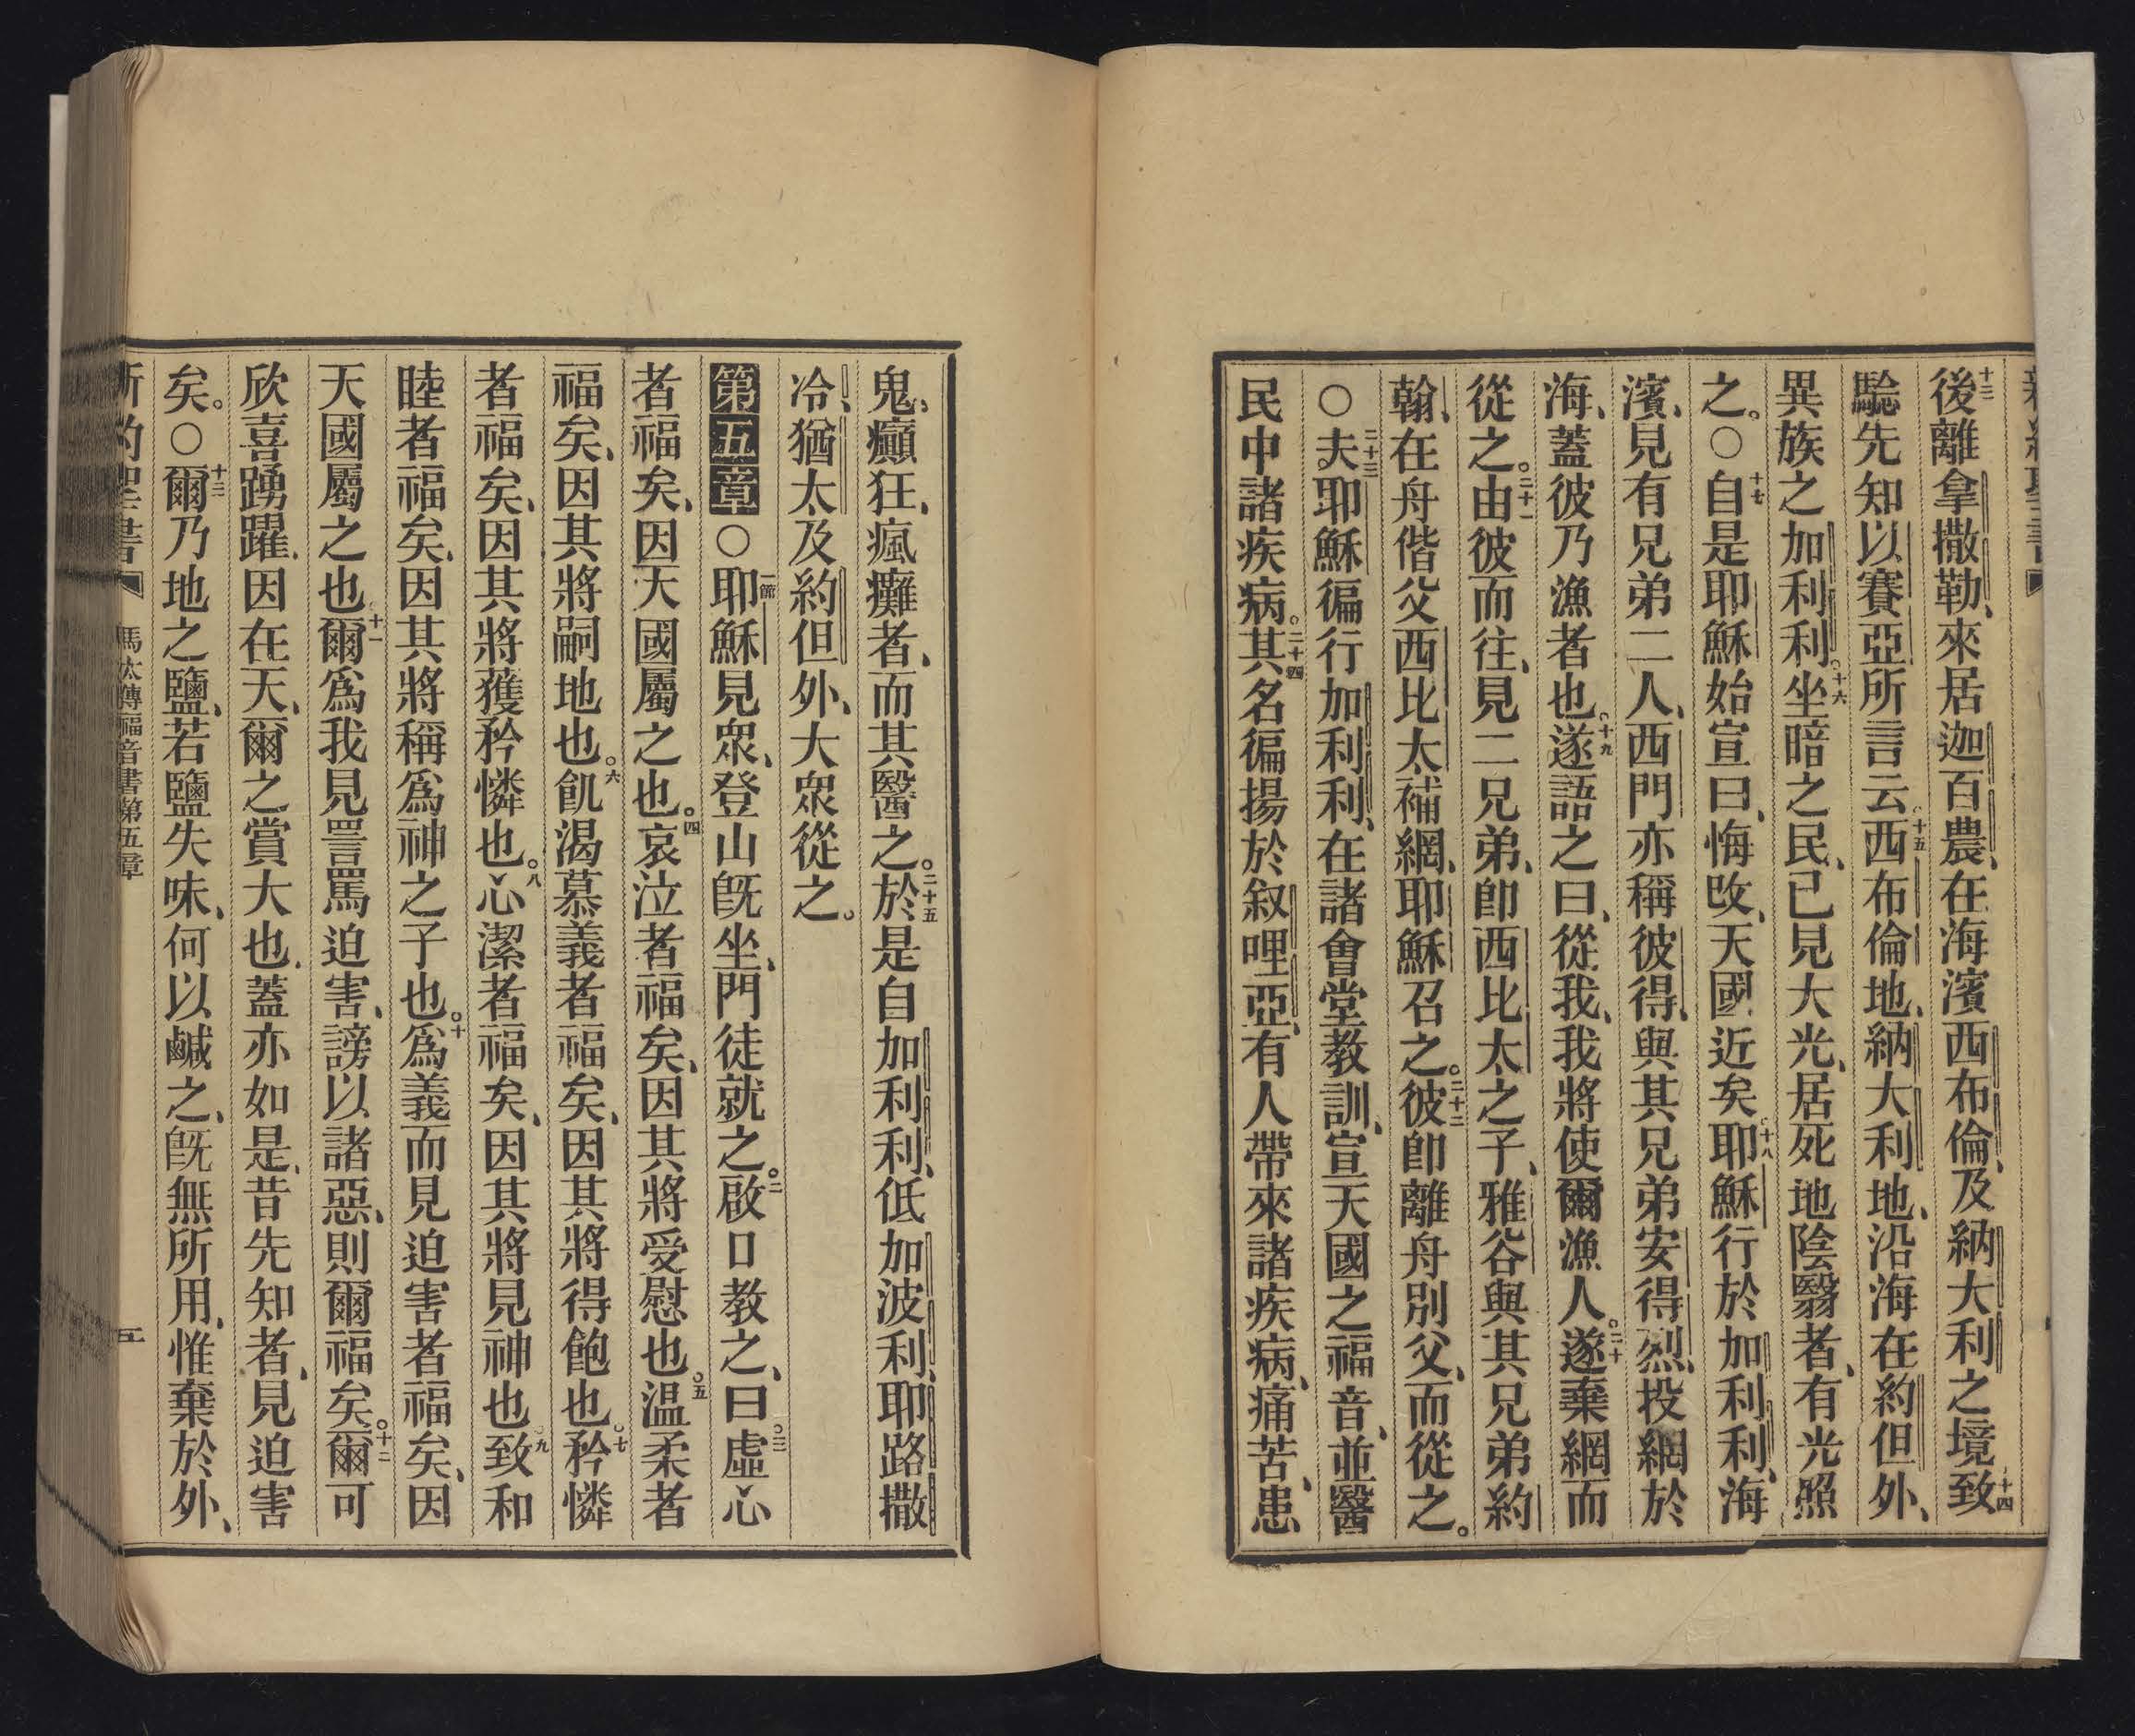 後離拿撒勒、來居迦百農、在海濱西布倫、及納大利之境、十四致
十三
驗先知以賽亞所言云、十五西布倫地、納大利地、沿海在約但外、
異族之加利利、十六坐暗之民、已見大光、居死地陰翳者、有光照
之。○十七自是耶穌始宣曰、悔改、天國近矣、十八耶穌行於加利利海
濱、見有兄弟二人、西門亦稱彼得、與其兄弟安得烈、投網於
海、蓋彼乃漁者也。十九遂語之曰、從我、我將使爾漁人。二十遂棄網而
從之。二十一由彼而往、見二兄弟、卽西比太之子、雅谷與其兄弟約
翰、在舟偕父西比太補網、耶穌召之。二十二彼卽離舟別父、而從之。
○二十三夫耶穌徧行加利利、在諸會堂教訓、宣天國之福音、並醫
民中諸疾病。二十四其名徧揚於叙哩亞、有人帶來諸疾病、痛苦、患
鬼、癲狂、瘋癱者、而其醫之。二十五於是自加利利、低加波利、耶路撒
冷、猶太及約但外、大眾從之。
第五章○一節耶穌見眾、登山旣坐、門徒就之。二啟口教之、曰。三虛心
者福矣、因天國屬之也。四哀泣者福矣、因其將受慰也。五温柔者
福矣、因其將嗣地也。六飢渴慕義者福矣、因其將得飽也。七矜憐
者福矣、因其將獲矜憐也。八心潔者福矣、因其將見神也。九致和
睦者福矣、因其將稱爲神之子也。十爲義而見迫害者福矣、因
天國屬之也。十一爾爲我見詈罵迫害、謗以諸惡、則爾福矣。十二爾可
欣喜踴躍、因在天、爾之賞大也、蓋亦如是、昔先知者、見迫害
矣。○十三爾乃地之鹽、若鹽失味、何以鹹之、旣無所用、惟棄於外、
新約聖書 馬太傳福音書第五章 五